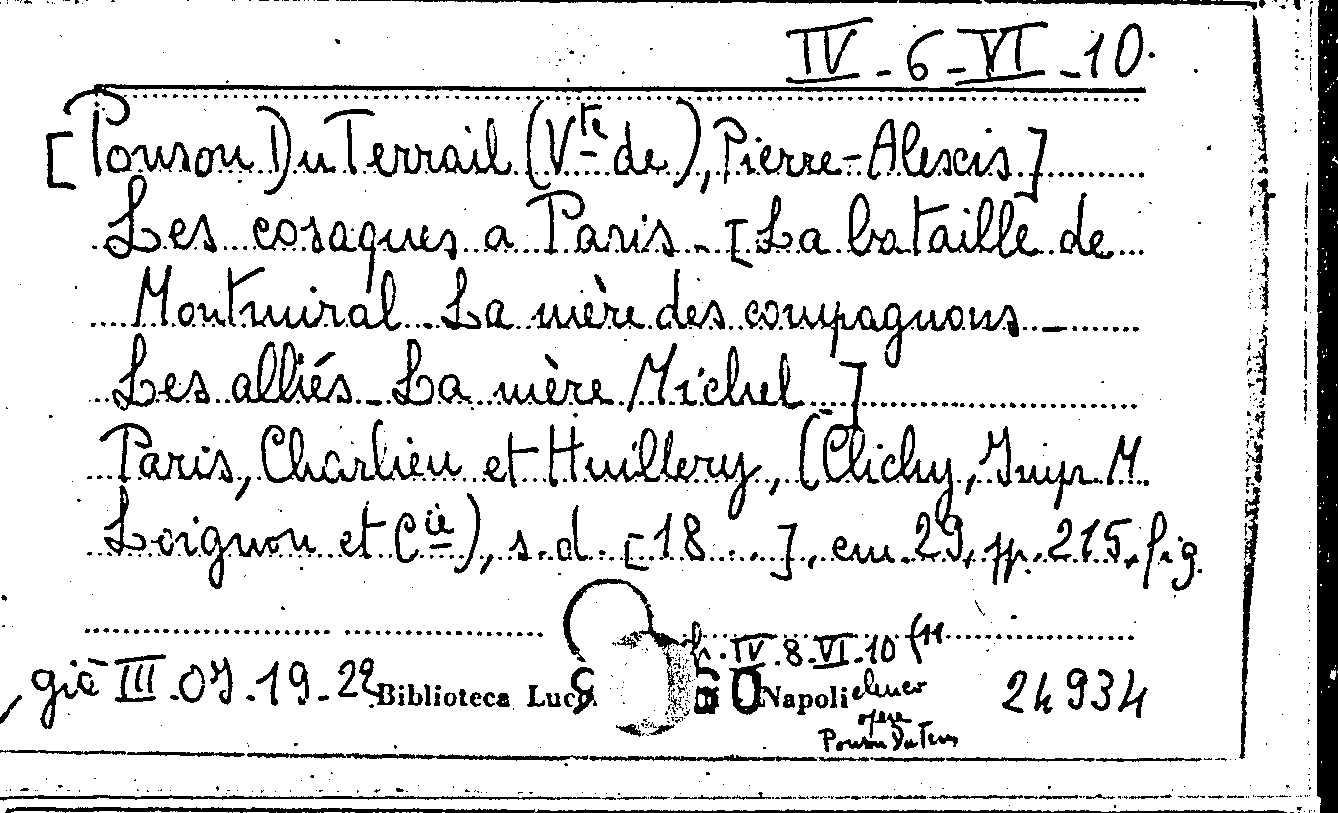 IV-6-VI-10.
[Ponson Du Terrail (Vte de), Pierre-Alexis]
Les cosaques a Paris - [La bataille de
Montmiral - La mère des compagnons -
Les alliés - La mère Michel -]
Paris, Charlieu et Huillery, (Clichy, Impr. M.
Loignon et Cie), s.d. [18...], cm. 29, pp. 215, fig.
IV.8.VI.10 (11
già III.07.19.22 Biblioteca Luc Napoli elenco 24934
opere
Ponson Du Terr